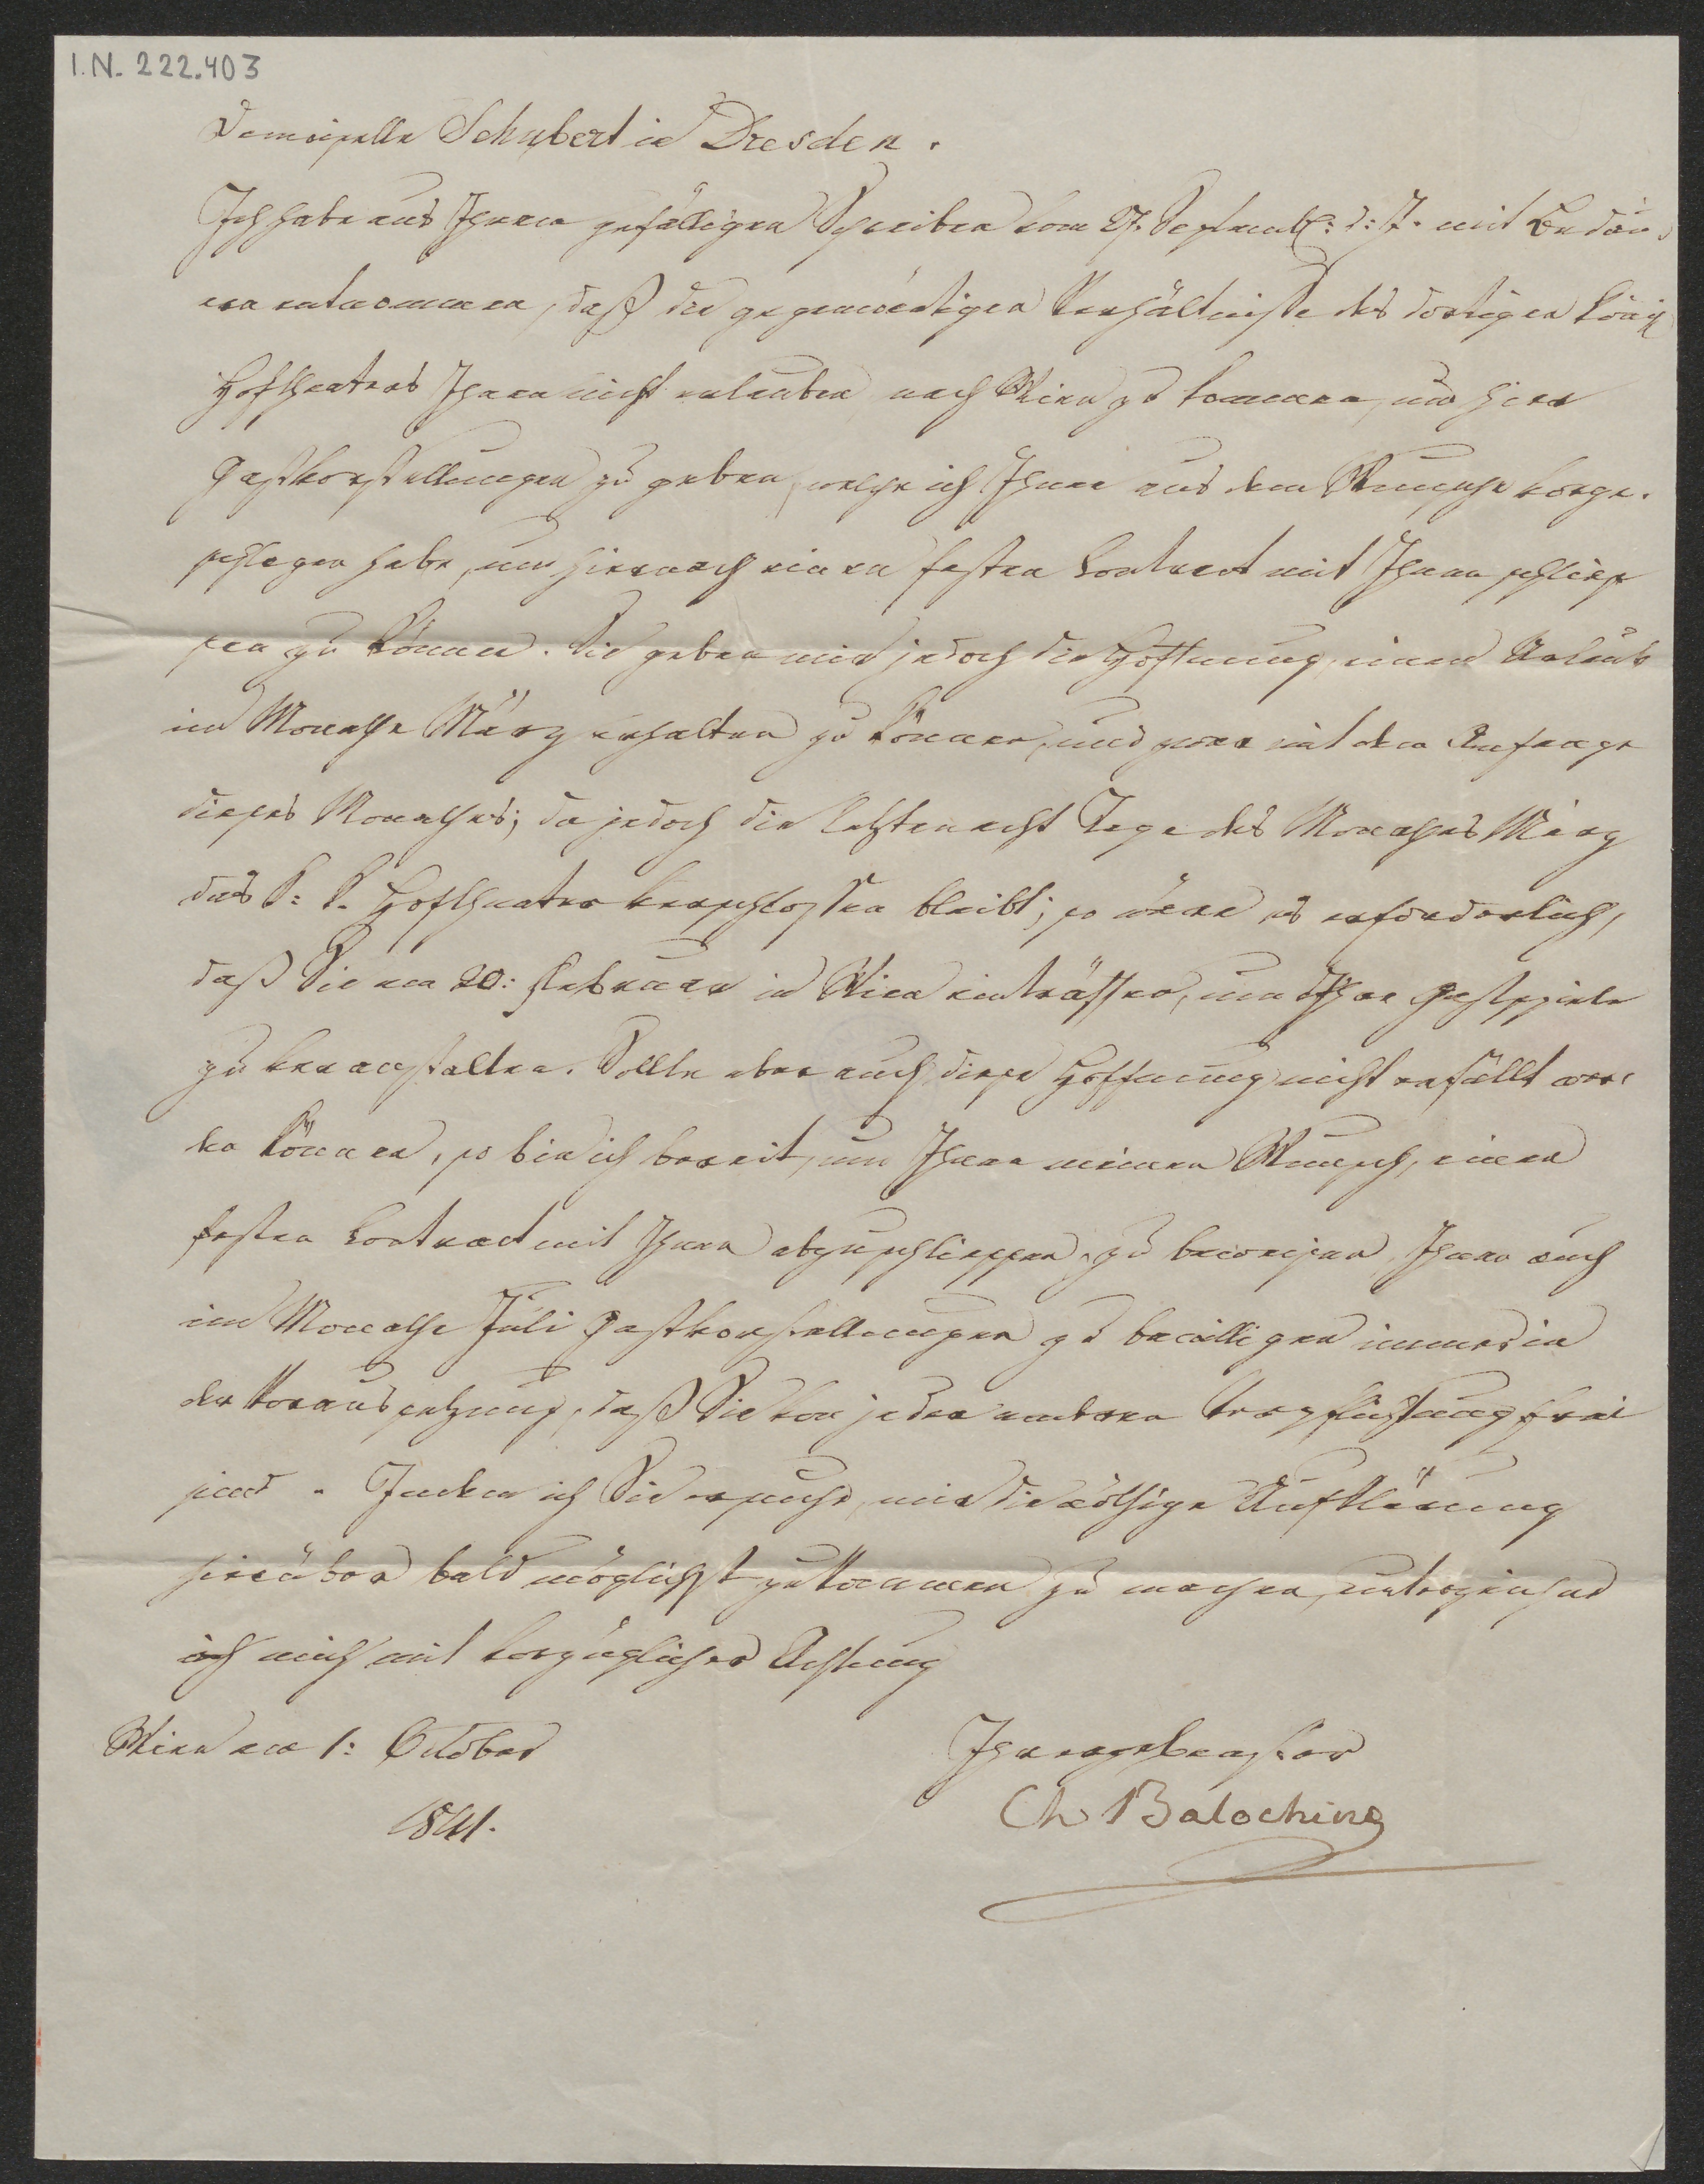 I.N. 222.403
Demoiselle Schubert in Dresden.
Ich habe aus Ihrem gefälligen Schreiben vom 27. Septemb: d: J. mit Bedau-
ern entnommen, daß die gegenwärtigen Verhältniße des dortigen königl
Hoftheaters Ihnen nicht erlauben nach Wien zu kommen, um hier
Gastvorstellungen zu geben, welche ich Ihnen aus dem Wunsche vorge-
schlagen habe, um hiernach einen festen Contract mit Ihnen schlies
sen zu können. Sie geben mir jedoch die Hoffnung, einen Urlaub
im Monathe März erhalten zu können, und zwar mit dem Anfange
dieses Monathes; da jedoch die letzten acht Tage des Monathes März
das k: k. Hoftheater verschlossen bleibt; so wäre es erforderlich,
daß Sie am 20: Februar in Wien einträffen, um Ihre Gastspiele
zu veranstalten. Sollte aber auch diese Hoffnung nicht erfüllt wer-
den können, so bin ich bereit, um Ihnen meinen Wunsch, einen
festen Contract mit Ihnen abzuschliessen, zu beweisen, Ihnen auch
im Monathe Juli Gastvorstellungen zu bewilligen immer in
der Voraussetzung, daß Sie von jeder andern Verpflichtung frei
sind. Indem ich Sie ersuche, mir die nöthige Aufklärung
hierüber bald möglichst zukommen zu machen, unterzeichne
ich mich mit vorzüglicher Achtung
Wien am 1: October
1841.
Ihr ergebenster
Ch Balochino